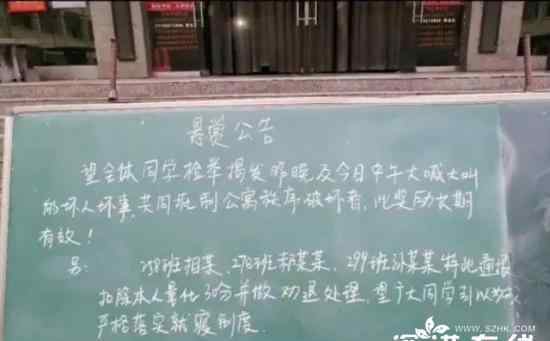 悬赏公告
望全体同学检举揭发昨晚及今日中午大喊大叫
的坏人坏事,共同抵制公寓秩序破坏者,此奖励长期
有效!
另: 258班相某、278班郝某某、299班孙某某特此通报
扣除本人量化30分并做劝退处理,望广大同学引以为戒
严格落实就寝制度.
WWW.SZHK.COM